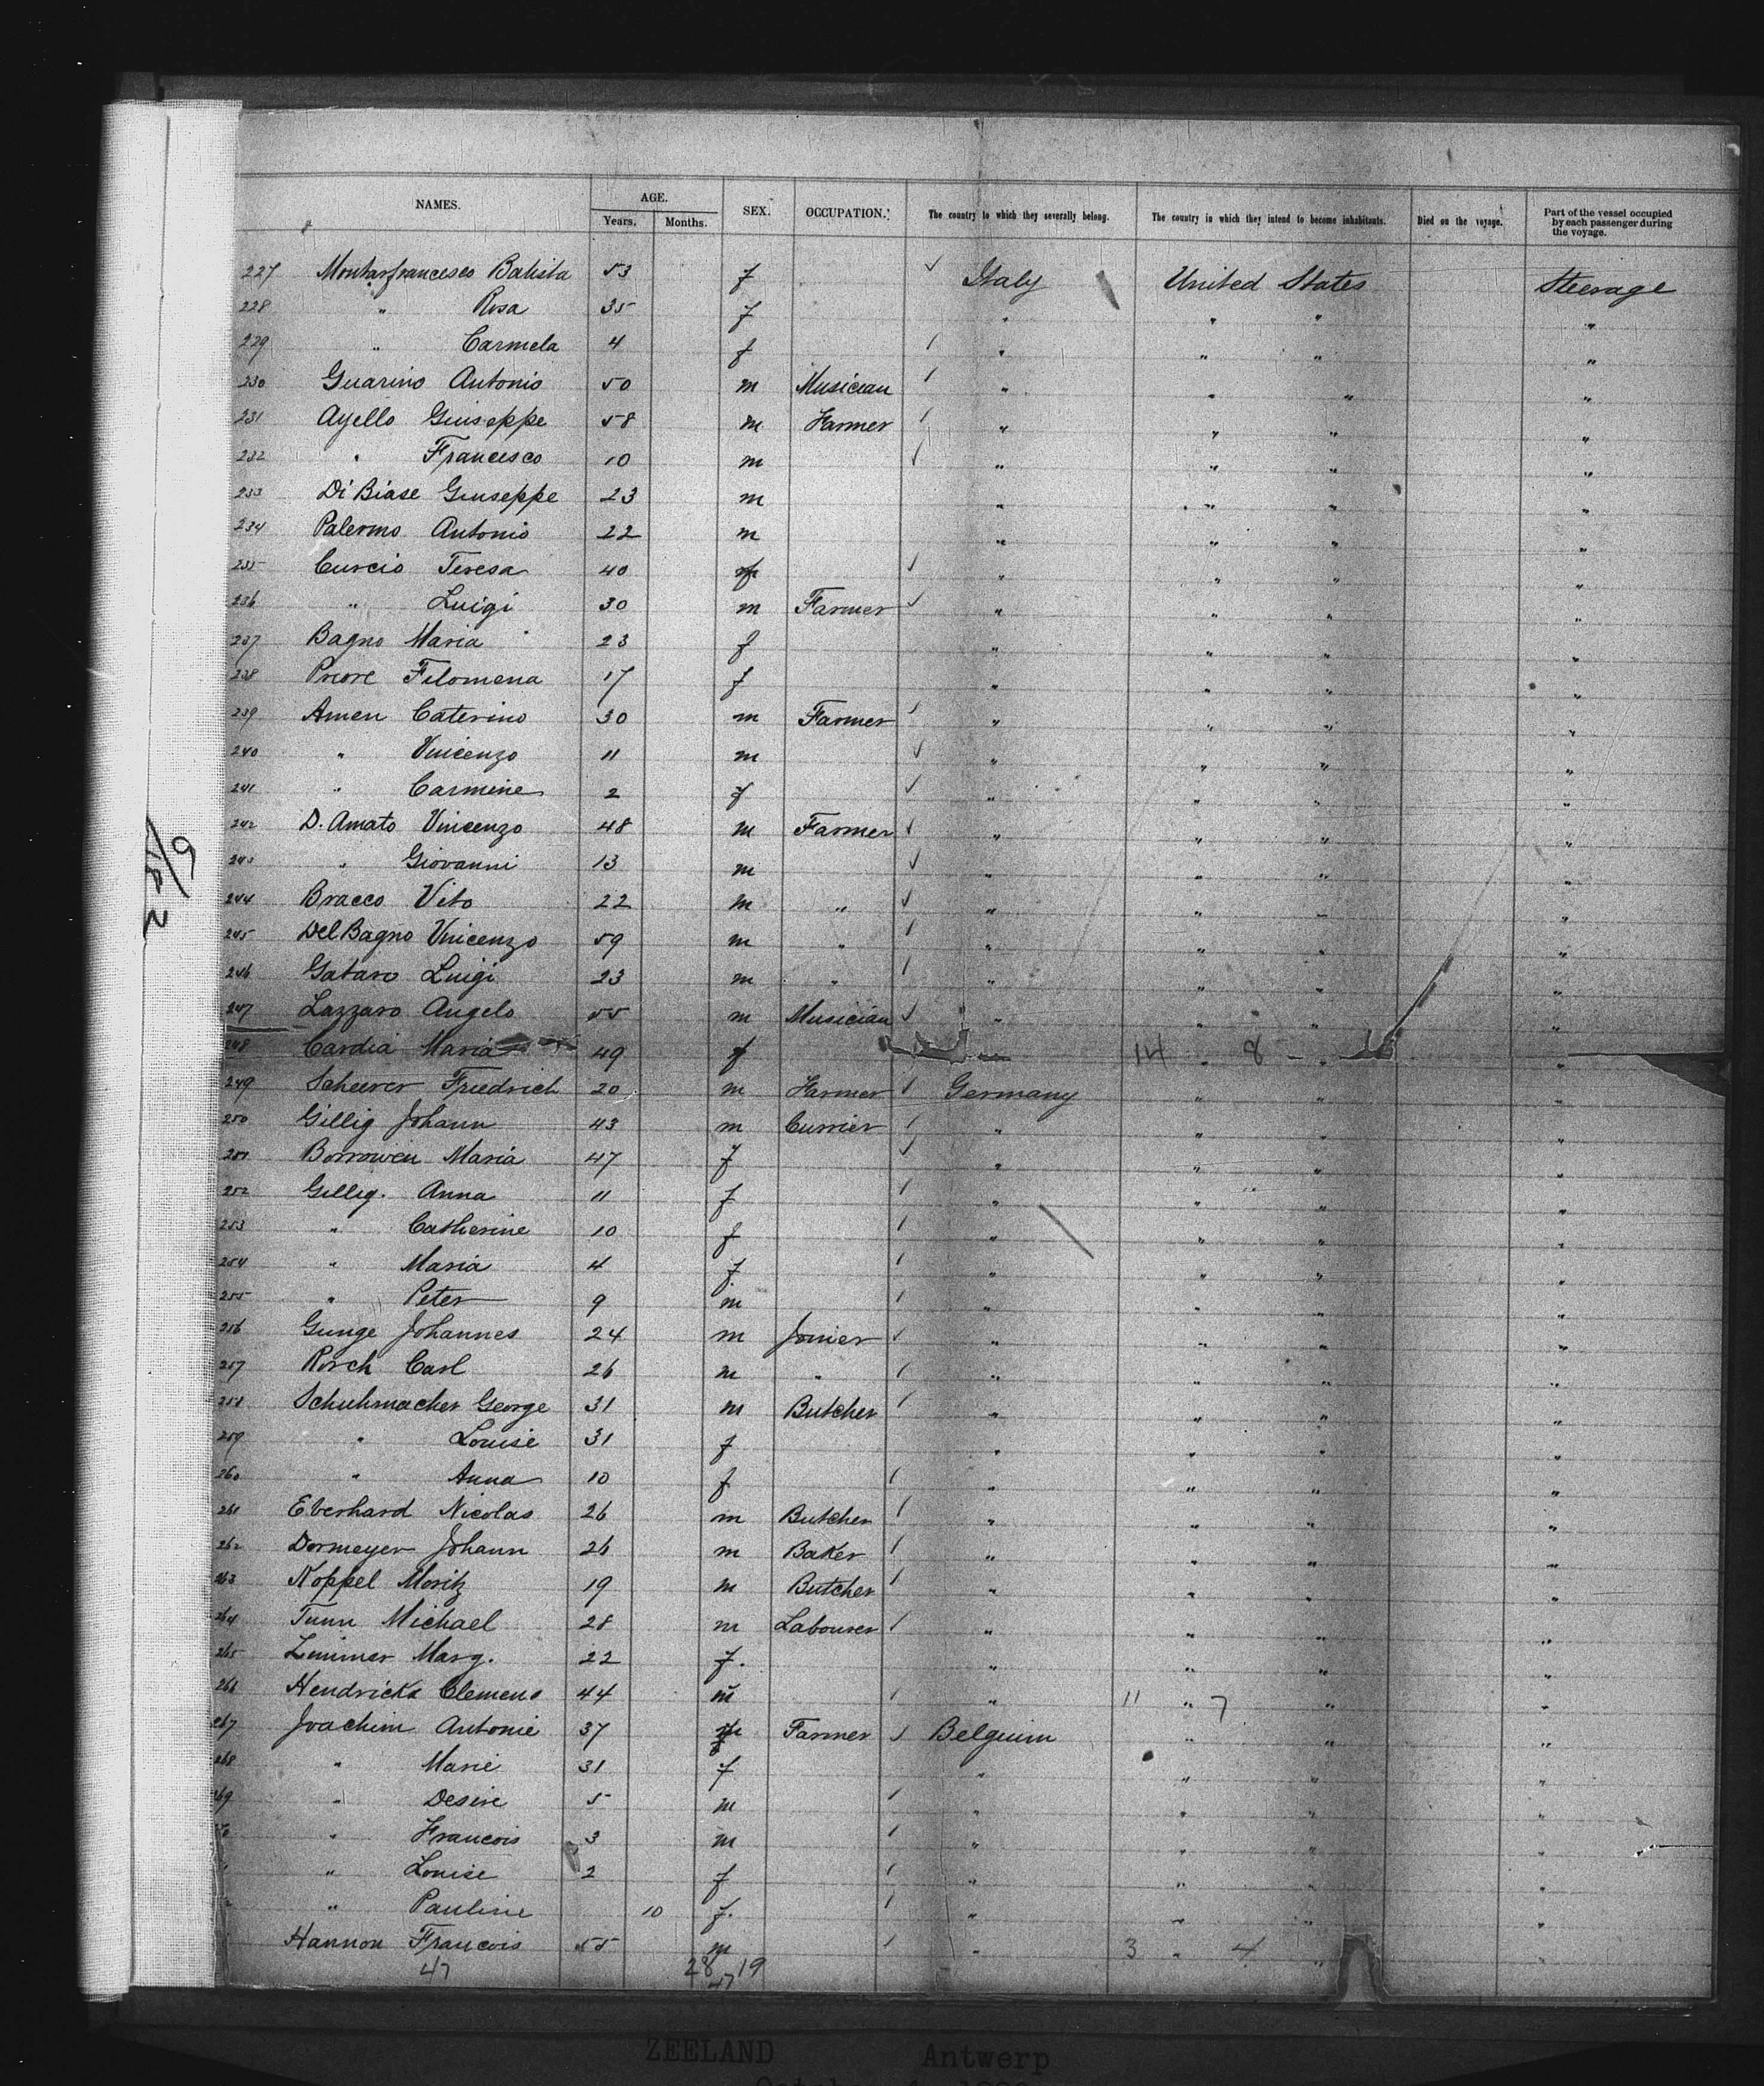 NAMES. AGE. Years. Months. SEX. OCCUPATION. The country to which they severally belong. The country in which they intend to become inhabitants. Died on the voyage. Part of the vessel occupied by each passenger during the voyage.
227 Batista 53 f Italy United States Steerage
228 " Rosa 35 f " " " "
229 " Carmela 4 f " " " "
230 Guarino Antonio 50 m Musician " " " "
231 Ayello Giuseppe 58 m Farmer " " " "
232 " Francesco 10 m " " " "
233 Di Biase Giuseppe 23 m " " " "
234 Palermo Antonio 22 m " " " "
235 Curcio Teresa 40 f " " " "
236 " Luigi 30 m Farmer " " " "
237 Bagno Maria 23 f " " " "
238 Priore Filomena 17 f " " " "
239 Amen Caterino 30 m Farmer " " " "
240 " Vincenzo 11 m " " " "
241 " Carmine 2 f " " " "
242 D. Amato Vincenzo 48 m Farmer " " " "
243 " Giovanni 13 m " " " "
244 Bracco Vito 22 m " " " " "
245 Del Bagno Vincenzo 59 m " " " " "
246 Gataro Luigi 23 m " " " " "
247 Lazzaro Angelo 55 m Musician " " " "
248 Cardia Maria 49 f 14 " 8 - " "
249 Scheerer Friedrich 20 m Farmer Germany " " "
250 Gillig Johann 43 m Currier " " " "
251 Maria 47 f " " " "
252 Gillig. Anna 11 f " " " "
253 " Catherine 10 f " " " "
254 " Maria 4 f " " " "
255 " Peter 9 m " " " "
256 Gunge Johannes 24 m Joiner " " " "
257 Rosch Carl 26 m " " " " "
258 Schuhmacher George 31 m Butcher " " " "
259 " Louise 31 f " " " "
260 " Anna 10 f " " " "
261 Eberhard Nicolas 26 m Butcher " " " "
262 Dormeyer Johann 26 m Baker " " " "
263 Koppel Moritz 19 m Butcher " " " "
264 Tunn Michael 28 m Labourer " " " "
265 Zimmer Marg. 22 f. " " " "
266 Hendrickx Clemens 44 m " 11 " 7 " "
267 Joachim Antonie 37 Farmer Belguim " " "
268 " Marie 31 f " " " "
269 " Desire 5 m " " " "
" Francois 3 m " " " "
" Louise 2 f " " " "
" Pauline 10 f. " " " "
Hannon Francois 55 m " 3 " 4 "
47 28 19
47
5/182
ZEELAND Antwerp